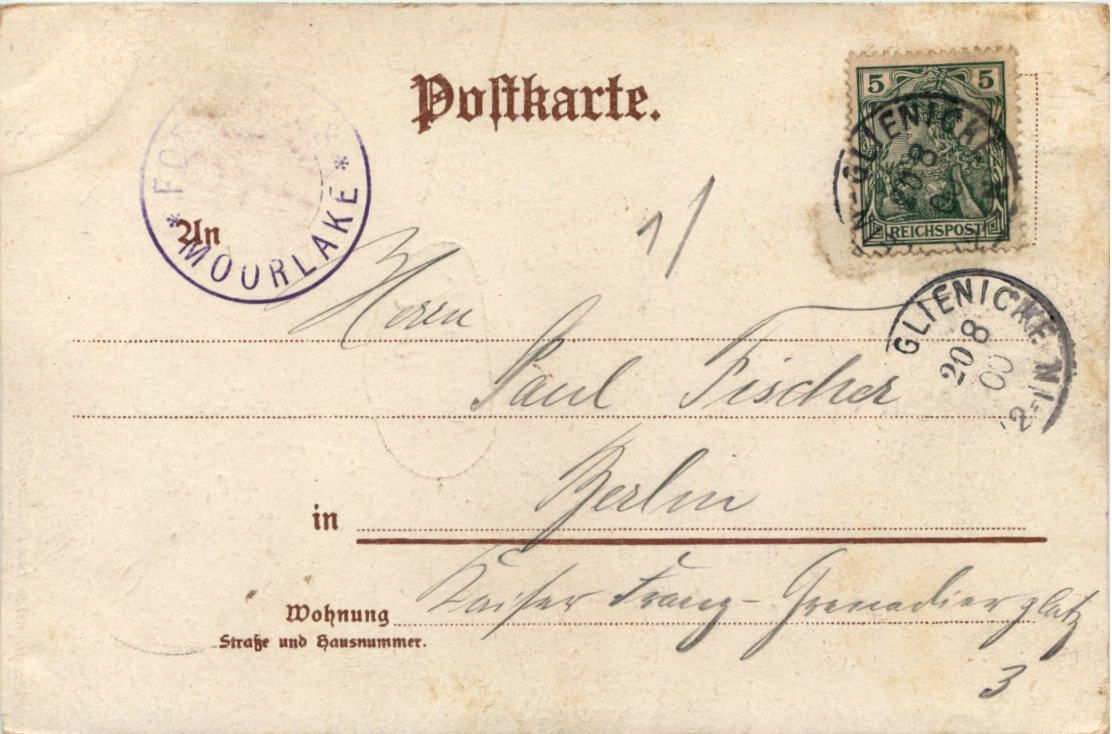 Postkarte.
5 5
REICHSPOST
GLIENICKE N
20 8
00
* MOURLAKE *
An
1/
Herrn
GLIENICKE N
20 8
00
2-
Paul Fischer
in Berlin
Wohnung Kaiser Franz-Grenadierplatz
Straße und Hausnummer.
3